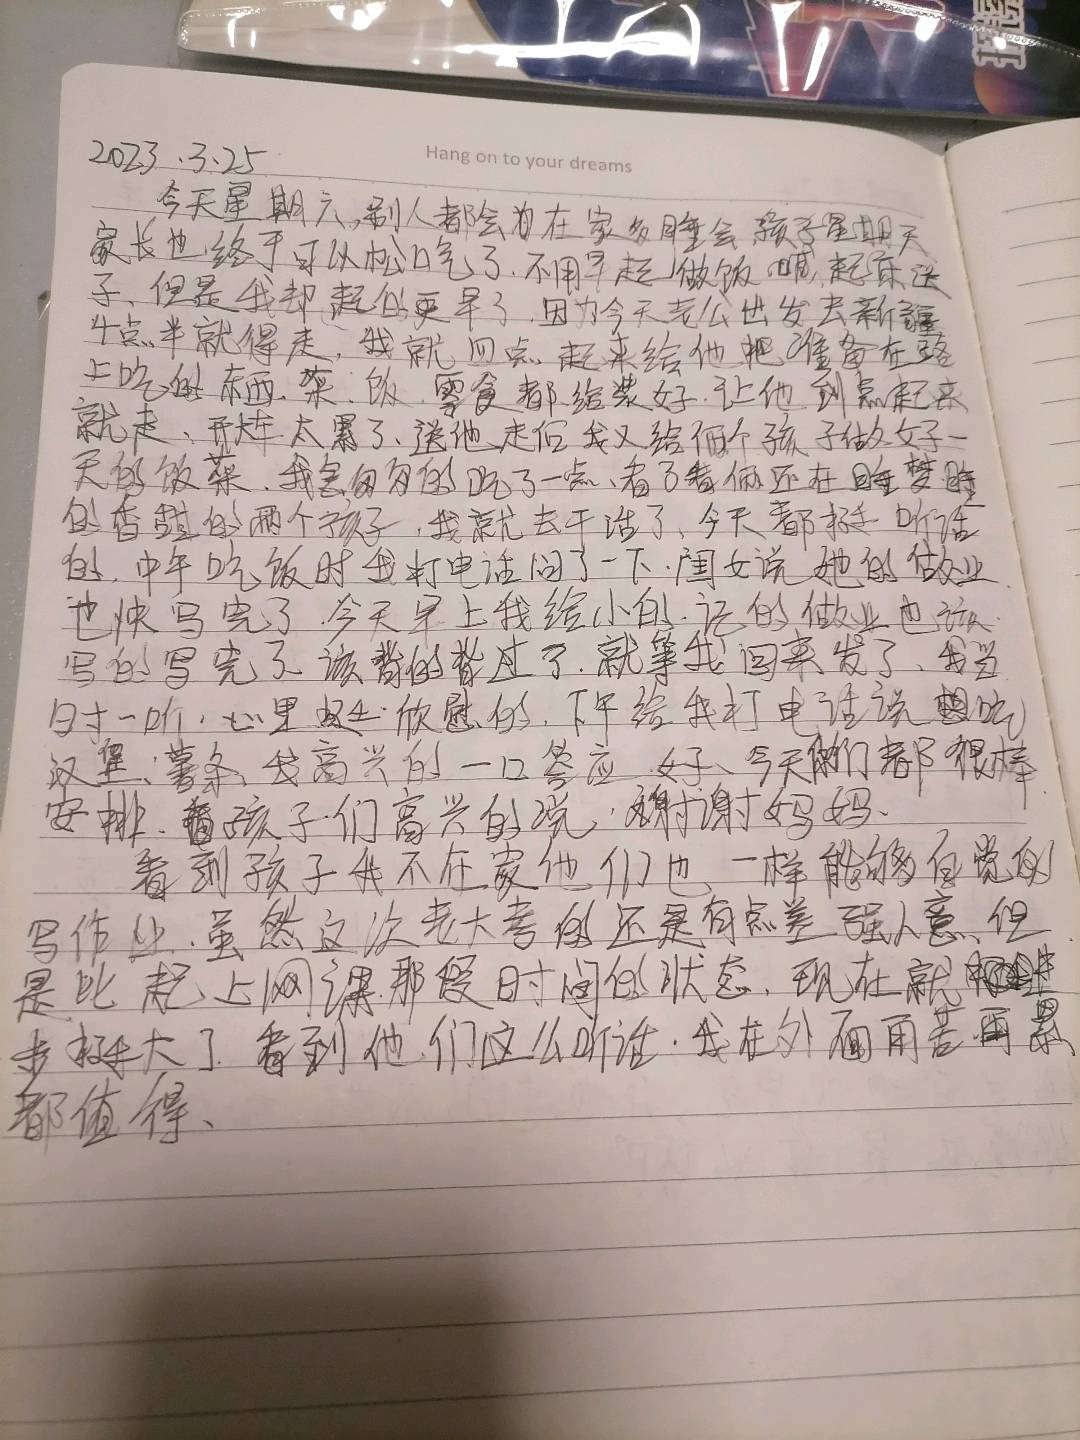 Hang on to your dreams
2023.3.25
今天星期六,别人都会为在家多睡会 孩子星期天
家长也终于可以松口气了.不用早起做饭喊起床送
子、但是我却起的更早了.因为今天老公出发去新疆
4点半就得走,我就四点起来给他把准备在路
上吃的东西.菜.饭.零食都给装好.让他到点起来
就走、开大车太累了、送他走后我又给俩个孩子做好一
天的饭菜.我匆匆的吃了一点、看了看俩还在睡梦睡
的香甜的两个孩子,我就去干活了、今天都挺听话
的.中午吃饭时我打电话问了一下.闺女说她的做业
也快写完了 今天早上我给小的.记的做业也该
写的写完了.该背的背过了.就等我回来发了、我当
时一听,心里挺欣慰的.下午给我打电话说想吃
汉堡、薯条、我高兴的一口答应.好、今天你们都很棒
安排.孩子们高兴的说,谢谢妈妈.
看到孩子我不在家他们也一样能够自觉的
写作业.虽然这次老大考的还是有点差强人意、但
是比起上网课那段时间的状态.现在就进
步挺大了.看到他们这么听话.我在外面再苦再累
都值得、